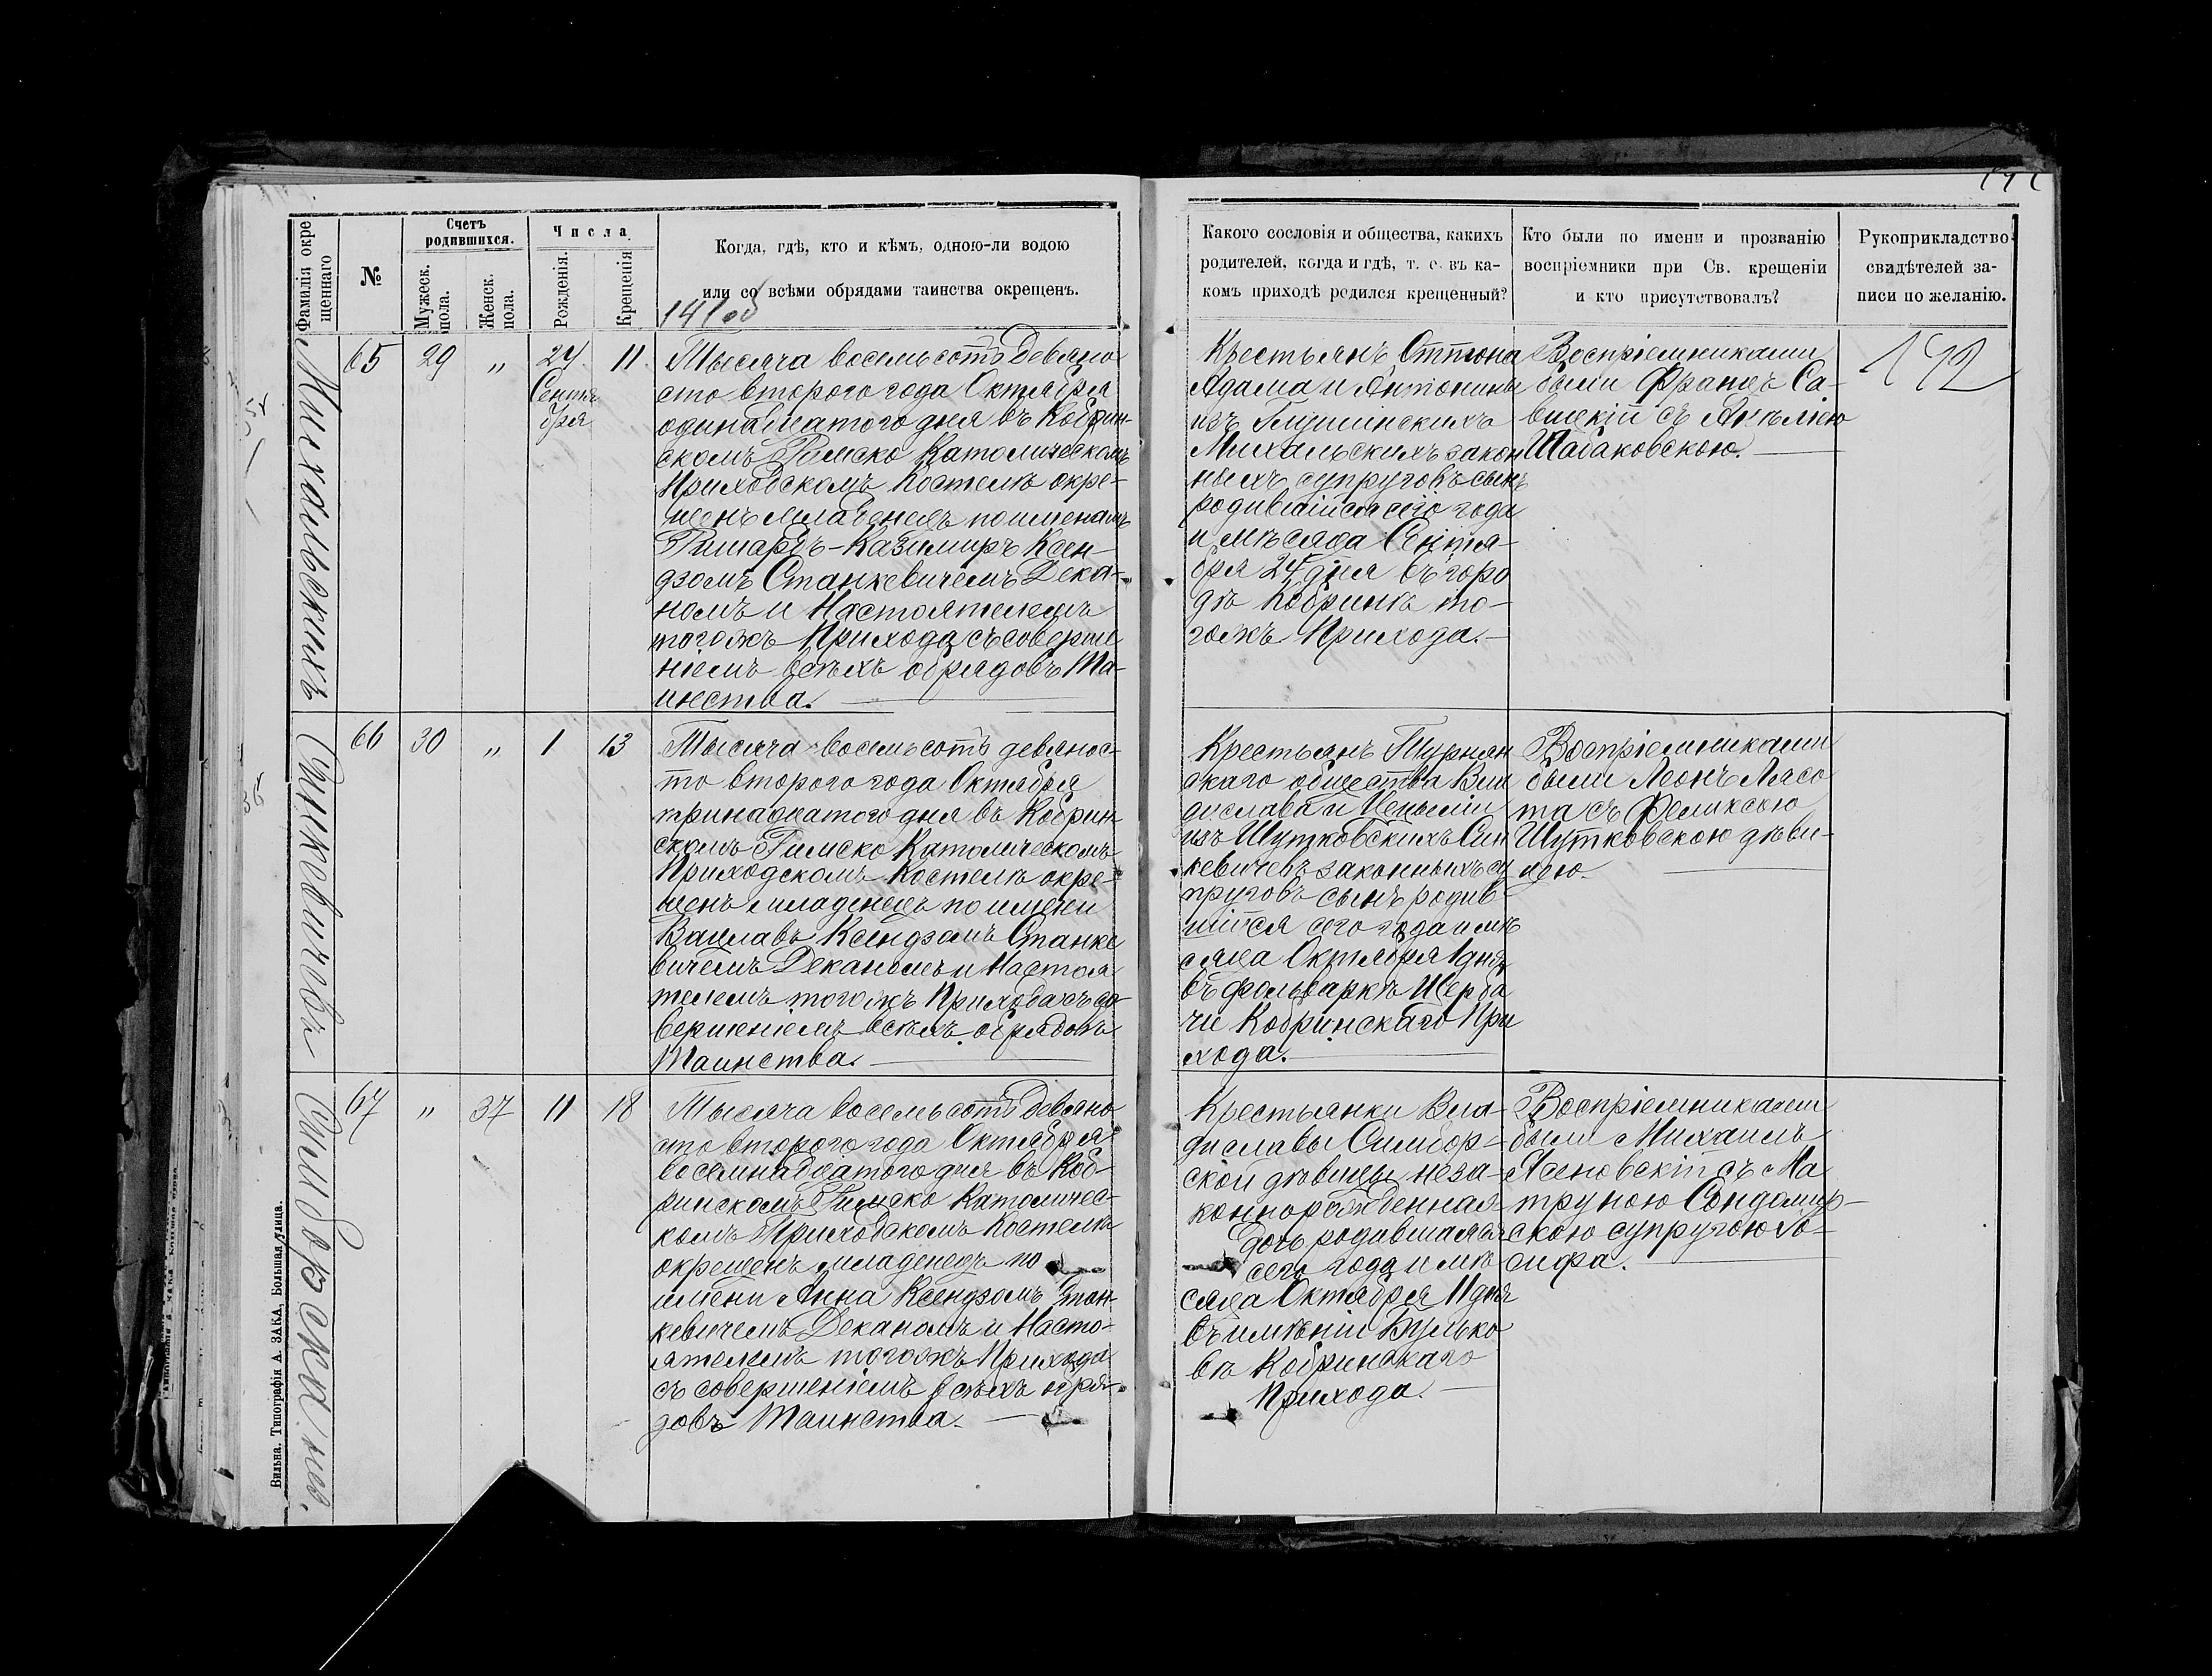 Фамилія окре
щеннаго
№
Счетъ
родившихся.
Мужеск.
пола.
Женск.
пола.
Числа
Рожденія.
Крещенія
Когда, гдѣ, кто и кѣмъ, одною-ли водою
или со всѣми обрядами таинства окрещенъ.
Михальскихъ
65
29
"
24
Сентя
бря
11
Тысяча восемьсотъ девяно
сто второго года Октября
одинадцатого дня въ Кобрин-
скомъ Римско Католическомъ
Приходскомъ Костелѣ окре-
щенъ младенецъ по именамъ
Ришардъ-Казимиръ Ксен-
дзомъ Станкевичемъ Дека-
номъ и Настоятелемъ
тогожъ Прихода съ соверше
ніемъ всѣхъ обрядовъ Та-
инства.
Синкевичовъ
66
30
"
1
13
Тысяча восемьсотъ девянос-
то второго года Октября
тринадцатого дня въ Кобрин
скомъ Римско Католическомъ
Приходскомъ Костелѣ окре-
щенъ младенецъ по имени
Вацлавъ Ксендзомъ Станке
вичемъ Деканомъ и Настоя
телемъ тогожъ Прихода съ со-
вершеніемъ всѣхъ обрядовъ
Таинства.
67
"
37
11
18
Тысяча восемьсотъ девяно
сто второго года Октября
восемнадцатого дня въ Коб-
ринскомъ Римско Католичес-
комъ Приходскомъ Костелѣ
окрещенъ младенецъ по
имени Анна Ксендзомъ Стан-
кевичемъ Деканомъ и Насто-
ятелемъ тогожъ Прихода
съ совершеніемъ всѣхъ обря-
довъ Таинства.
Вильна. Типографія А. ЗАКА, Большая улица.
Какого сословія и общества, какихъ
родителей, когда и гдѣ, т. е. въ ка-
комъ приходѣ родился крещенный?
Кто были по имени и прозванію
воспріемники при Св. крещеніи
и кто присутствовалъ?
Рукоприкладство
свидѣтелей за-
писи по желанію.
Крестьянъ Оттона
Адама и Антонины
изъ
Михальскихъ закон
ныхъ супруговъ сынъ
родившійся сего года
и мѣсяца Сентя-
бря 24 дня въ горо
дѣ Кобринѣ то-
гожъ Прихода.
Воспріемниками
были Францъ Са-
вицкій съ Анѣлією
Шабаковскою.
192
Крестьянъ
скаго общества Вла
дислава и
изъ Шутковскихъ Син
кевичевъ законныхъ су
пруговъ сынъ родив-
шійся сего года и мѣ
сяца Октября 1 дня
въ фольваркѣ Щерба
чи Кобринскаго При
хода.
Воспріемниками
были Леонъ Лясо
та съ Феликсою
Шутковскою дѣви-
цею.
Крестьянки Вла-
диславы
ской дѣвицы неза-
коннорожденная
дочь родившаяся
сего года и мѣ
сяца Октября 11 дня
въ имѣніи Вулько
вѣ Кобринскаго
Прихода.
Воспріемниками
были Михаилъ
Ясеновскій съ Ма
труною Сондомир-
скою супругою Іо-
сифа.